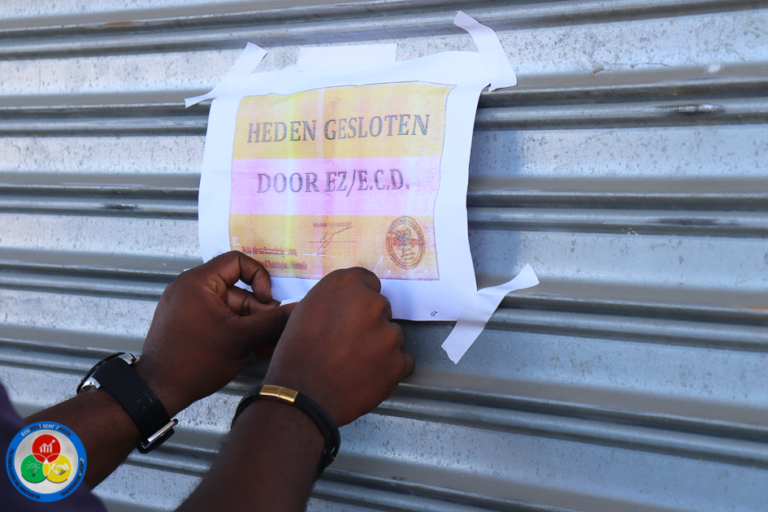 HEDEN GESLOTEN
DOOR EZ/E.C.D.